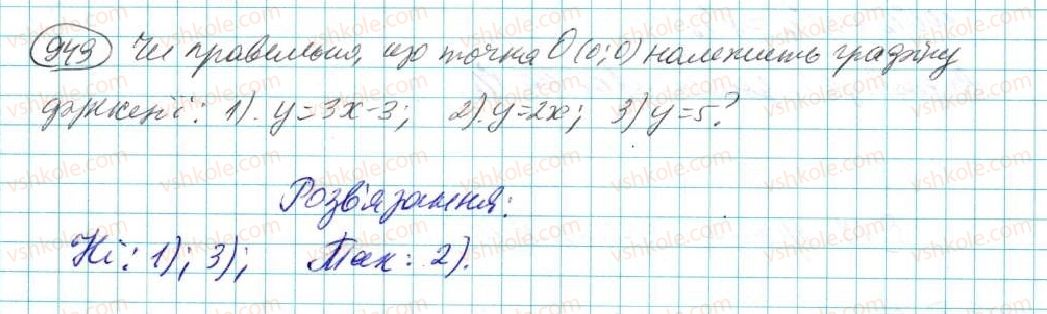 949 Чи правильно, що точка O(0;0) належить графіку
функції: 1). y=3x-3; 2). y=2x; 3) y=5?
Розв'язання:
Ні: 1); 3); Так: 2).